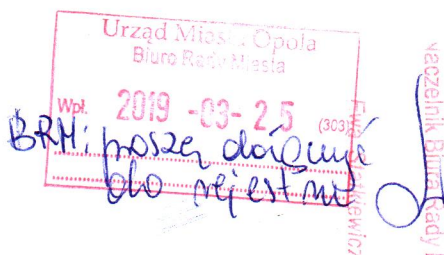 Urząd Miasta Opola
Biuro Rady Miasta
Wpł. 2019 -03- 25 (303)
BRM: proszę dołączyć
do rejestru
Naczelnik Biura Rady
Ewa